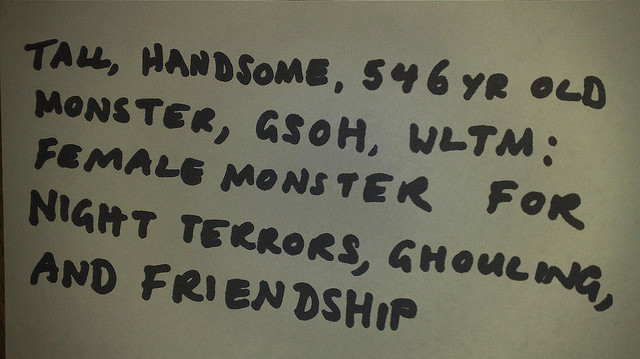 TALL, HANDSOME, 546 YR OLD
MONSTER, GSOH, WLTM:
FEMALE MONSTER FOR
NIGHT TERRORS, GHOULING,
AND FRIENDSHIP